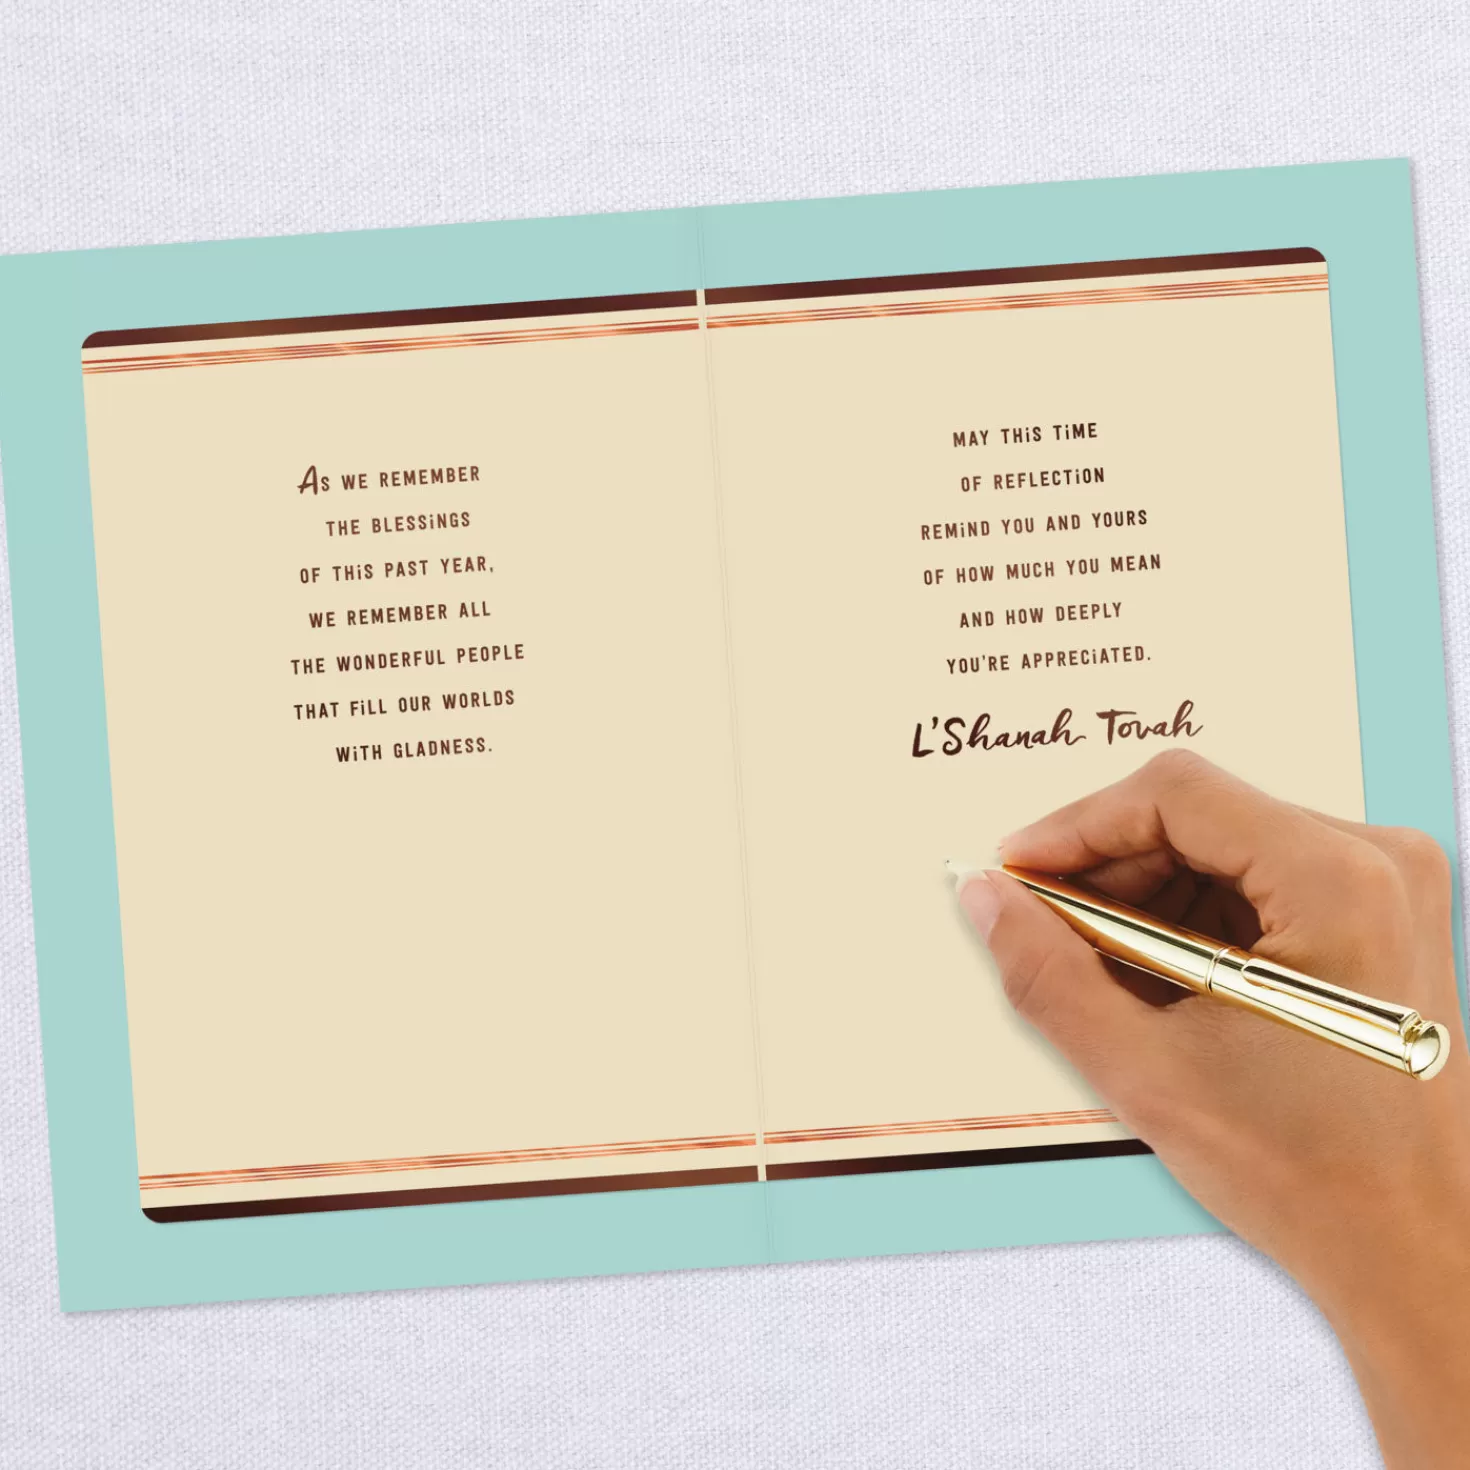 As WE REMEMBER
THE BLESSiNGS
OF THiS PAST YEAR,
WE REMEMBER ALL
THE WONDERFUL PEOPLE
THAT FiLL OUR WORLDS
WiTH GLADNESS.
MAY THiS TiME
OF REFLECTiON
REMiND YOU AND YOURS
OF HOW MUCH YOU MEAN
AND HOW DEEPLY
YOU'RE APPRECiATED.
L'Shanah Tovah